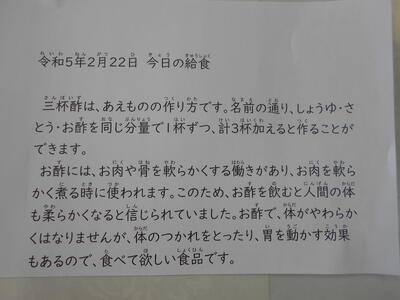 令和5年2月22日 今日の給食
三杯酢は、あえものの作り方です。名前の通り、しょうゆ・さ
とう・お酢を同じ分量で1杯ずつ、計3杯加えると作ることが
できます。
お酢には、お肉や骨を軟らかくする働きがあり、お肉を軟ら
かく煮る時に使われます。このため、お酢を飲むと人間の体
も柔らかくなると信じられていました。お酢で、体がやわらか
くはなりませんが、体のつかれをとったり、胃を動かす効果
もあるので、食べて欲しい食品です。